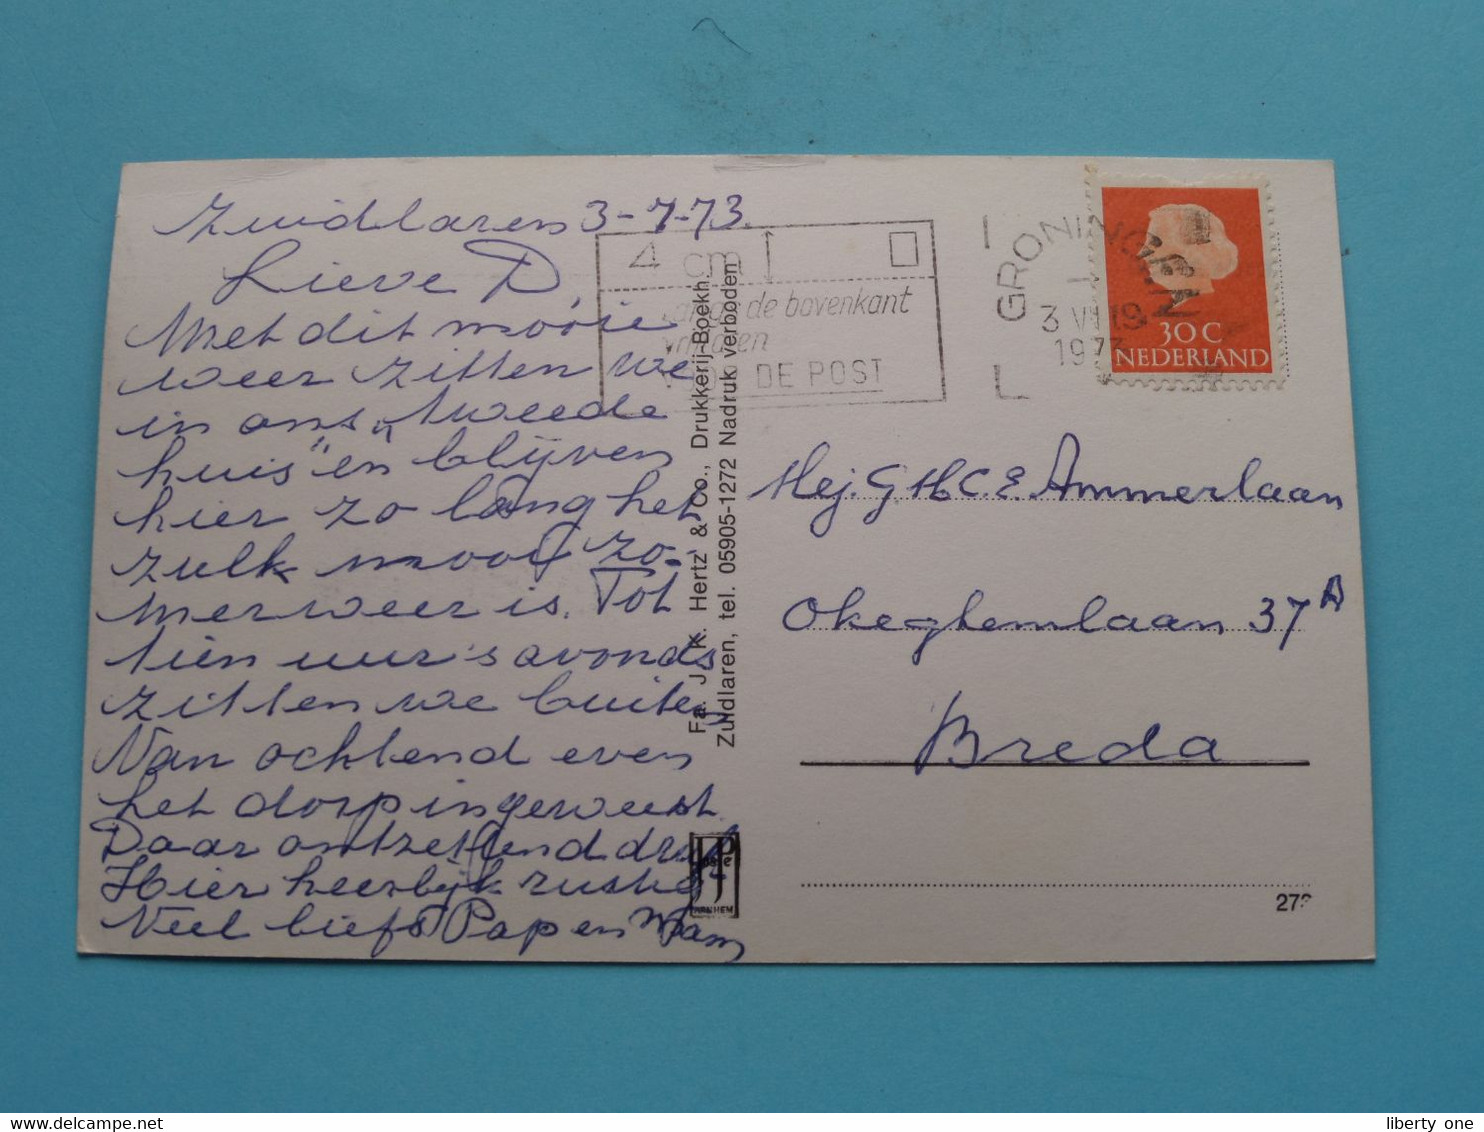 Zuidlaren 3-7-73.
Lieve D,
Met dit mooie
weer zitten we
in ons „tweede
huis” en blijven
hier zo lang het
zulk mooi zo-
merweer is. Tot
tien uur 's avonds
zitten we buiten
Van ochtend even
het dorp ingeweest
Daar ontzettend druk
Hier heerlijk rustig
Veel liefs Pap en Mam
Fa. J. K. Hertz & Co., Drukkerij-Boekh.
Zuidlaren, tel. 05905-1272 Nadruk verboden
4 cm
langs de bovenkant
vrijlaten
VOOR DE POST
GRONINGEN
3 VII 19
1973
30 C
NEDERLAND
Mej. G H.C.E. Ammerlaan
Okeghemlaan 37A
Breda
ARNHEM
273
liberty one